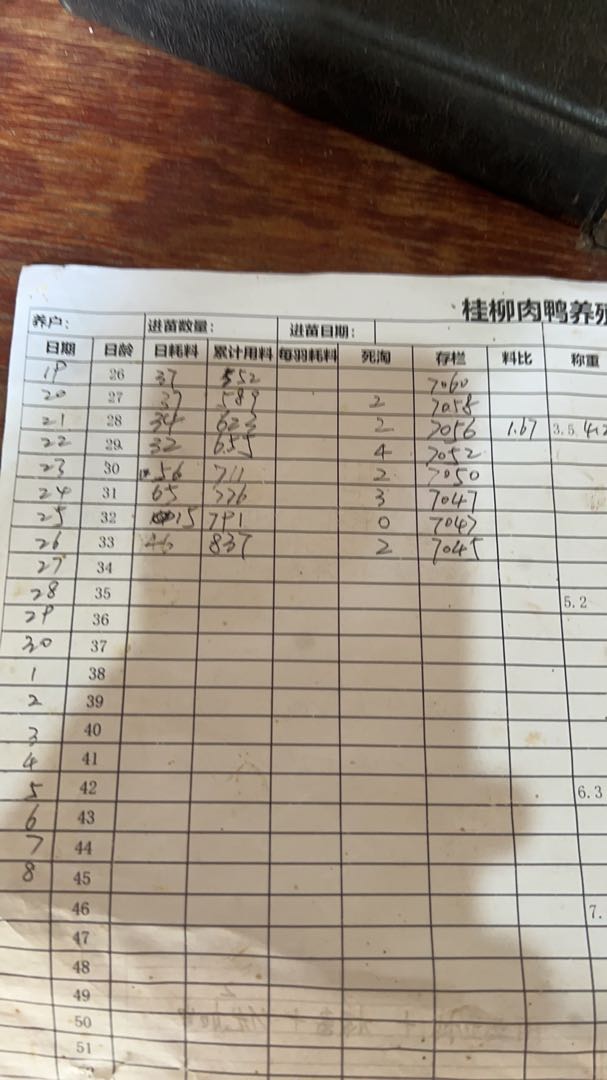 桂柳肉鸭养殖
养户: 进苗数量: 进苗日期:
日期 日龄 日耗料 累计用料 每羽耗料 死淘 存栏 料比 称重
19 26 37 552 7060
20 27 37 589 2 7058
21 28 34 623 2 7056 1.67 3.5 4.2
22 29 32 655 4 7052
23 30 56 711 2 7050
24 31 65 776 3 7047
25 32 15 791 0 7047
26 33 46 837 2 7045
27 34
28 35 5.2
29 36
30 37
1 38
2 39
3 40
4 41
5 42 6.3
6 43
7 44
8 45
46 7.
47
48
49
50
51